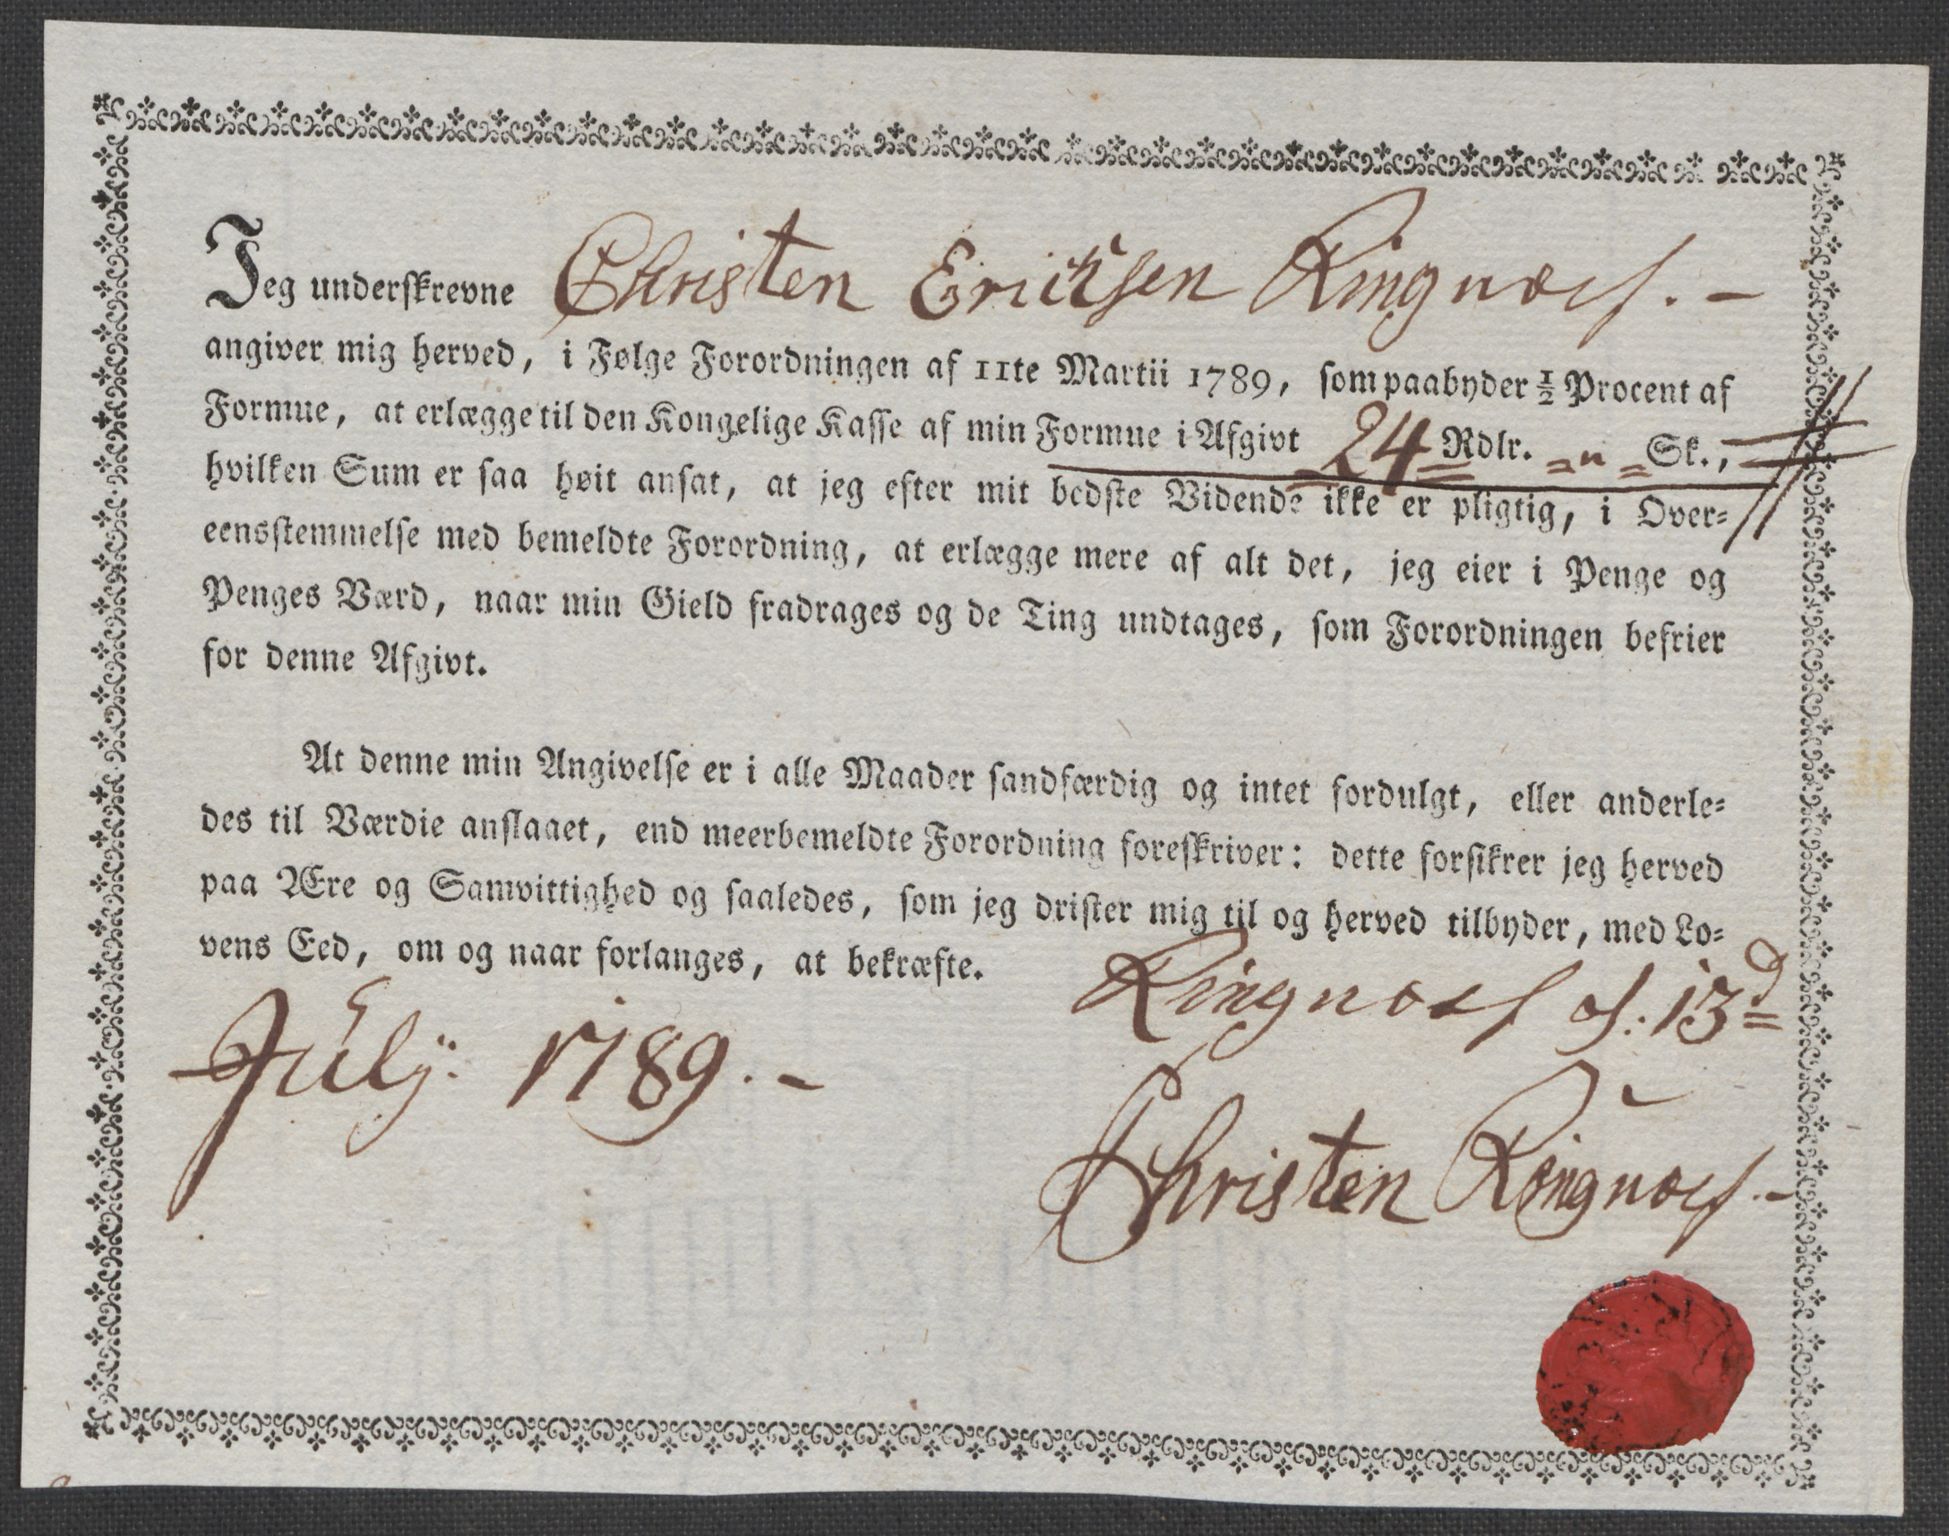 Jeg underskrevne Christen Ericksen Ringnæs.-
angiver mig herved, i Følge Forordningen af 11te Martii 1789, som paabyder ½ Procent af
Formue, at erlægge til den Kongelige Kasse af min Formue i Afgivt 24 Rdlr. " Sk.,
hvilken Sum er saa høit ansat, at jeg efter mit bedste Vidende ikke er pligtig, i Over=
eensstemmelse med bemeldte Forordning, at erlægge mere af alt det, jeg eier i Penge og
Penges Værd, naar min Gield fradrages og de Ting undtages, som Forordningen befrier
for denne Afgivt.
At denne min Angivelse er i alle Maader sandfærdig og intet fordulgt, eller anderle=
des til Værdie anslaaet, end meerbemeldte Forordning foreskriver: dette forsikrer jeg herved
paa Ære og Samvittighed og saaledes, som jeg drister mig til og herved tilbyder, med Lo=
vens Eed, om og naar forlanges, at bekræfte. Ringnæs d. 13d
July: 1789.-
Christen Ringnæs.-